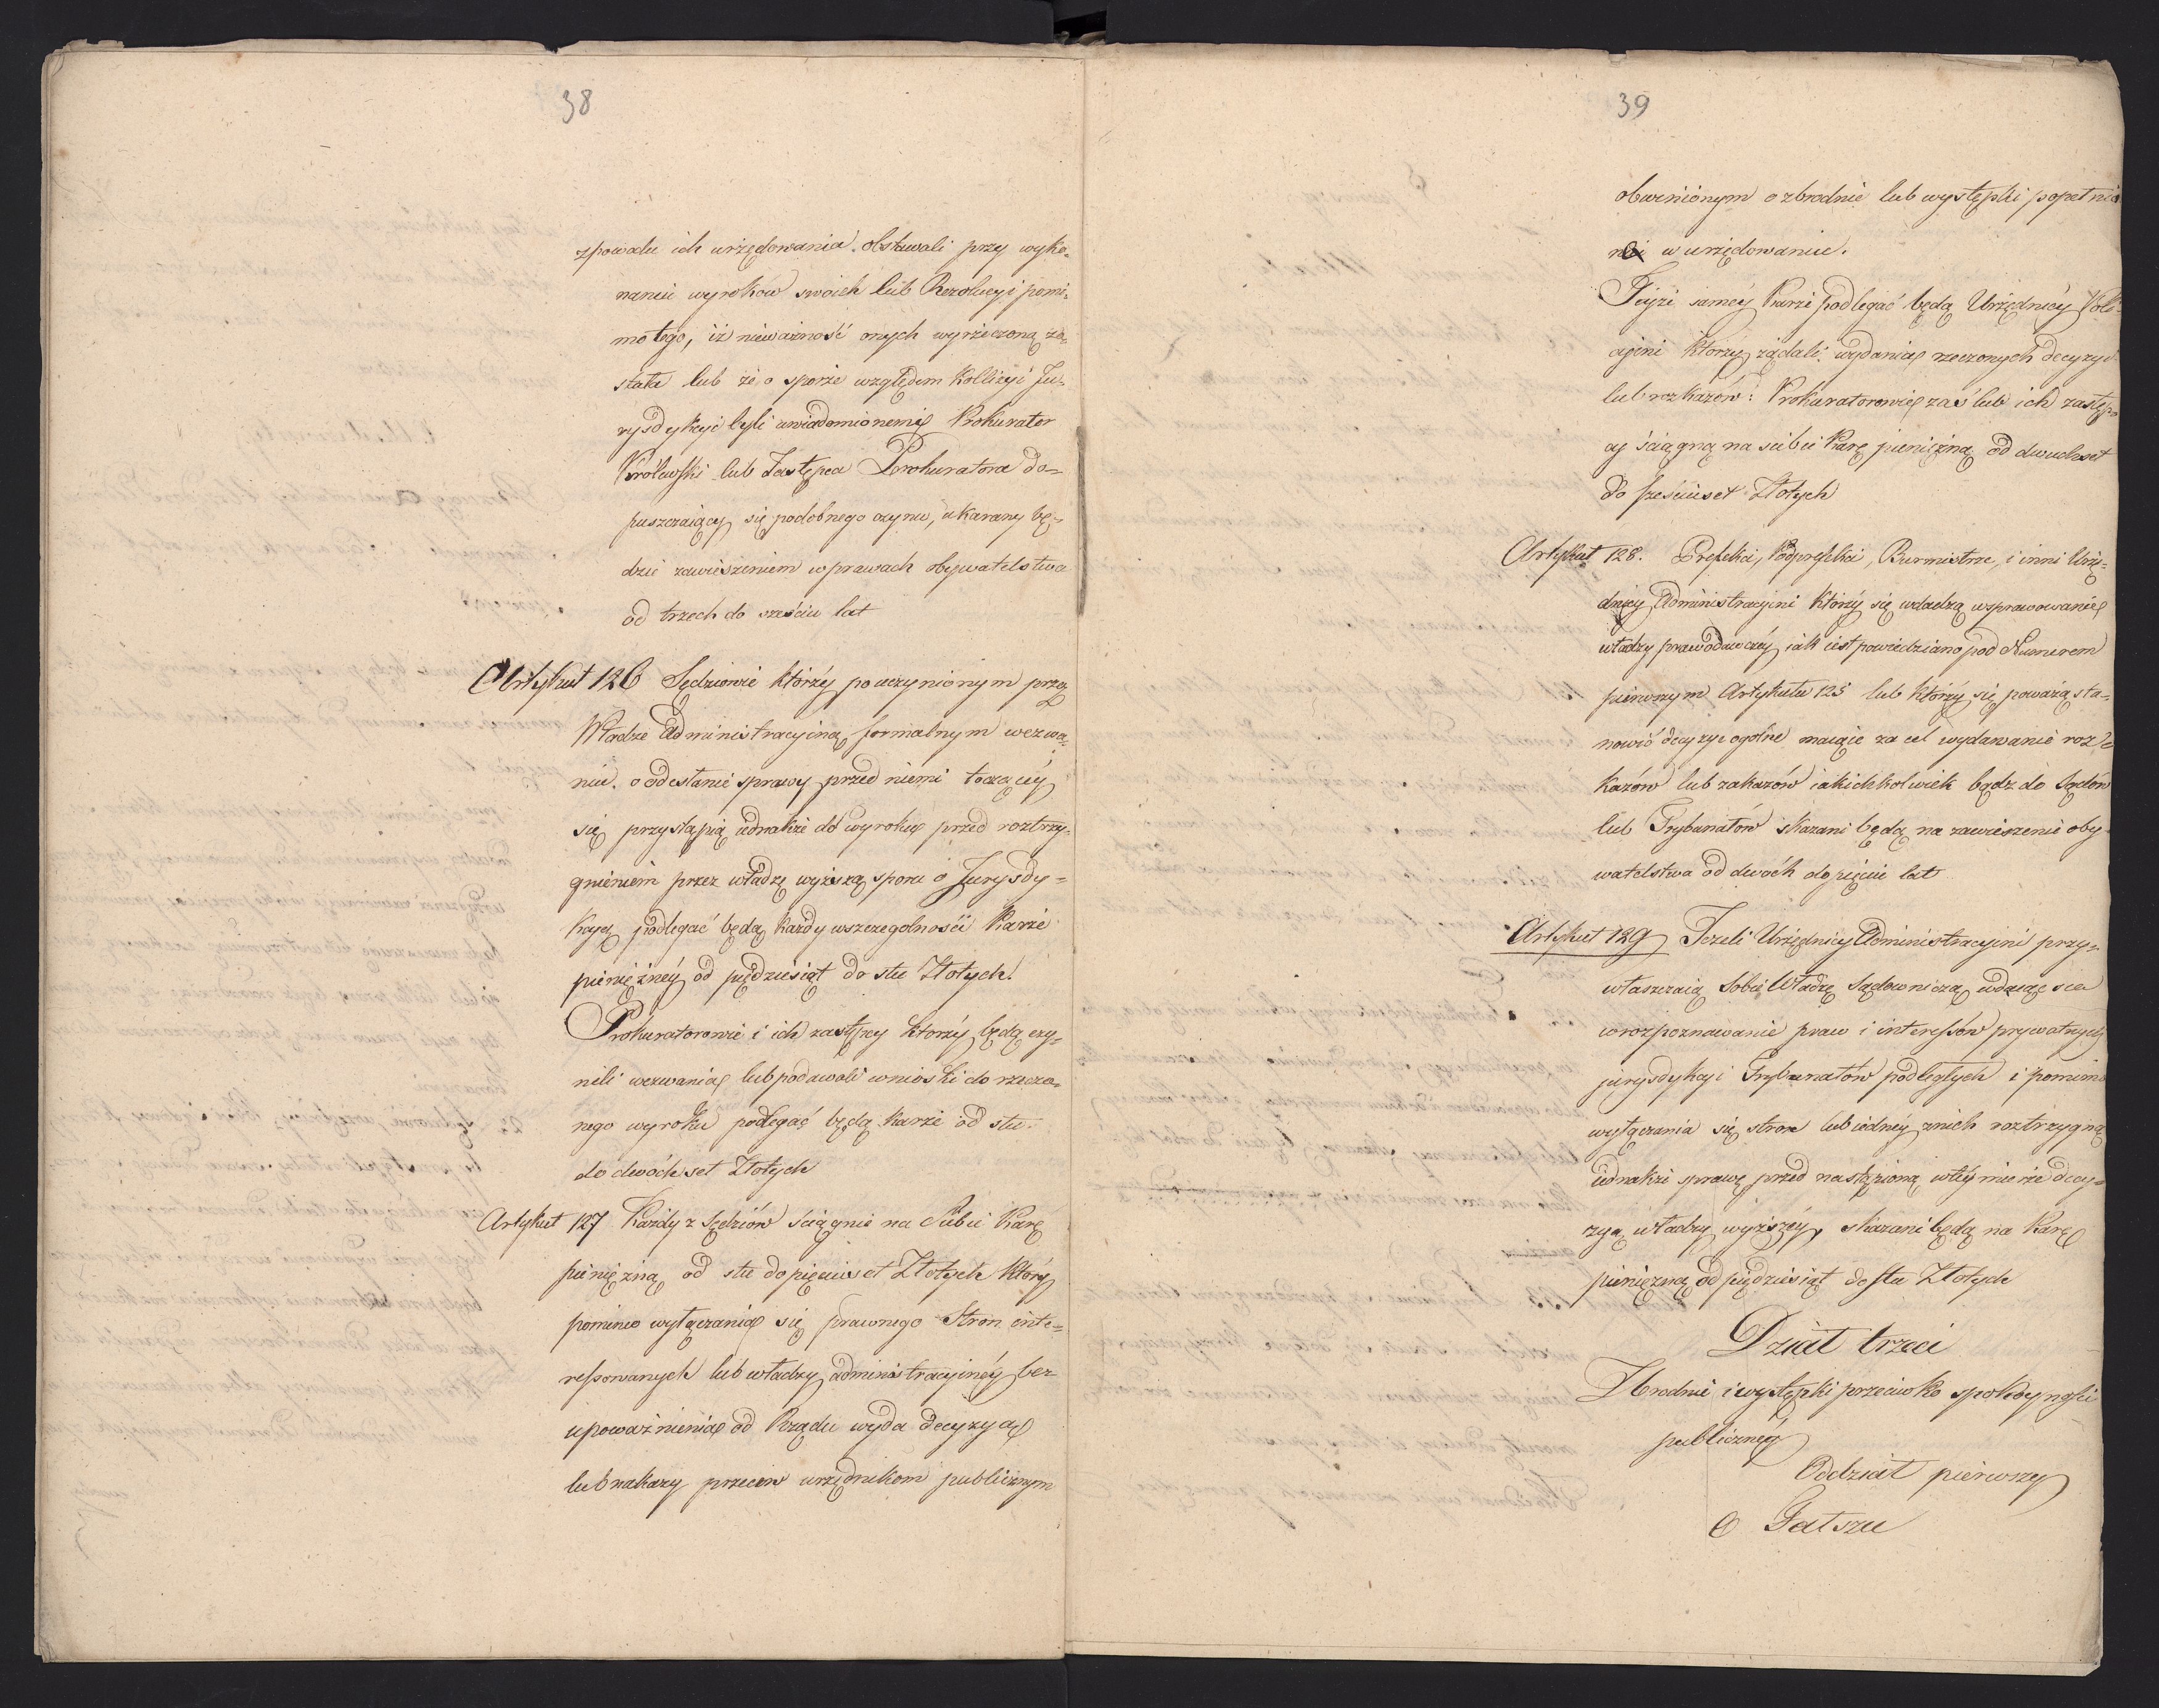 38
zpowodu ich urzędowania obstawali przy wyko-
naniu wyroków swoich lub Rezolucyi pomi-
mo tego, iż nieważność onych wyrzeczoną zo-
stała lub że o sporze względem Kollizyi Ju-
rysdykcyi byli uwiadomionemi Prokurator
Królewski lub Zastępca Prokuratora do-
puszczaiący się podobnego czynu, ukarany bę-
dzie zawieszeniem w prawach obywatelstwa
od trzech do sześciu lat
Artykuł 126 Sędziowie którzy po uczynionym przez
Władze Administracyiną formalnym wezwa-
niu o odesłanie sprawy przed niemi toczącey
się przystąpią iednakże do wyroku przed roztrzy-
gnieniem przez władzę wyższą sporu o Jurysdy-
kcyą podlegać będą każdy wszczególności Karze
pieniężney od pięćdziesiąt do stu Złotych.
Prokuratorowie i ich zastępcy którzy będą czy-
nili wezwania lub podawali wnioski do rzeczo-
nego wyroku podlegać będą karze od stu
do dwóchset Złotych
Artykuł 127 Każdy z Sędziów ściągnie na Siebie Karę
pieniężną od stu do pięciuset Złotych który
pomimo wyłączania się prawnego Stron inte-
ressowanych lub władzy administracyiney bez
upoważnienia od Rządu wyda decyzyą
lub nakazy przeciw urzędnikom publicznym
39
obwinionym o zbrodnie lub występki popełnio
ne w urzędowaniu.
Teyże samey Karze podlegać będą Urzędnicy Poli-
cyjni którzy żądali wydania rzeczonych decyzyi
lub rozkazów: Prokuratorowie zaś lub ich zastęp
cy ściągną na siebie Karę pieniężną od dwuchset
do sześciuset Złotych
Artykuł 128. Prefekci, Podprefekci, Burmistrze, i inni Urzę-
dnicy Administracyini którzy się wdadzą w sprawowanie
władzy prawodawczey iak iest powiedziano pod Numerem
pierwszym Artykułu 125 lub którzy się poważą sta-
nowić decyzye ogolne maiące za cel wydawanie roz
kazów lub zakazów iakichkolwiek bądz do Sądów
lub Trybunałów skazani będą na zawieszenie oby
watelstwa od dwóch do pięciu lat
Artykuł 129 Jeżeli Urzędnicy Administracyini przy-
właszczaią Sobie Władzę Sądowniczą wdaiąc sie
w rozpoznawanie praw i interessów prywatnych
jurysdykcyi Trybunałów podległych i pomimo
wyłączania się stron lub iedney znich roztrzygną
iednakże sprawę przed nastąpioną w tey mierze decy-
zyą władzy wyższey, skazani będą na Karę
pieniężną od pięćdziesiąt do stu Złotych
Dział trzeci
Zbrodnie i występki przeciwko spokoyności
publiczney
Oddział pierwszy
O Fałszu